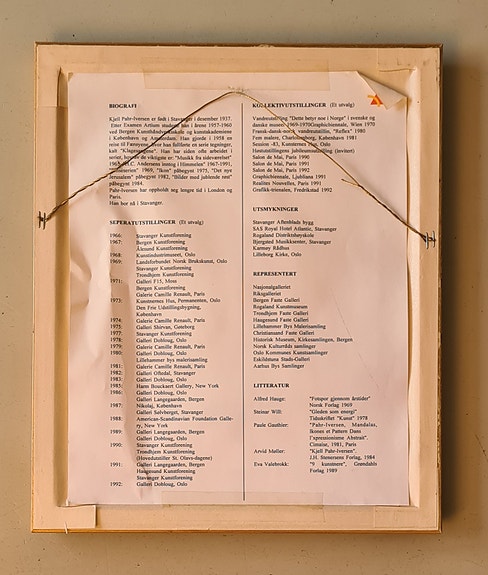 BIOGRAFI
Kjell Pahr-Iversen er født i Stavanger i desember 1937.
Etter Examen Artium studerte han i årene 1957-1960
ved Bergen Kunsthåndverksskole og kunstakademiene
i København og Amsterdam. Han gjorde i 1958 en
reise til Færøyene, hvor han fullførte en serie tegninger,
kalt "Klagesangene". Han har siden ofte arbeidet i
serier, hvorav de viktigste er: "Musikk fra sideværelset"
Innsettens inntog i "Himmelen" 1967-1991,
"Ikon" påbegynt 1975, "Det nye
Jerusalem" påbegynt 1982, "Bilder med jublende rett"
påbegynt 1984.
Pahr-Iversen har oppholdt seg lengre tid i London og
Paris.
Han bor nå i Stavanger.
SEPERATUTSTILLINGER (Et utvalg)
1966: Stavanger Kunstforening
1967: Bergen Kunstforening
Ålesund Kunstforening
1968: Kunstindustrimuseet, Oslo
1969: Landsforbundet Norsk Brukskunst, Oslo
Stavanger Kunstforening
Trondhjem Kunstforening
1971: Galleri F15, Moss
Bergen Kunstforening
Galerie Camille Renault, Paris
1973: Kunstnernes Hus, Permanenten, Oslo
Den Frie Udstillingsbygning,
København
1974: Galerie Camille Renault, Paris
1975: Galleri Shirvan, Gøteborg
1977: Stavanger Kunstforening
1978: Galleri Dobloug, Oslo
1979: Galerie Camille Renault, Paris
1980: Galleri Dobloug, Oslo
Lillehammer bys malerisamling
1981: Galerie Camille Renault, Paris
1982: Galleri Oftedal, Stavanger
1983: Galleri Dobloug, Oslo
1985: Harm Bouckaert Gallery, New York
1986: Galleri Dobloug, Oslo
Galleri Langegaarden, Bergen
1987: Nikolaj, København
Galleri Sølvberget, Stavanger
1988: American-Scandinavian Foundation Galle-
ry, New York
1989: Galleri Langegaarden, Bergen
Galleri Dobloug, Oslo
1990: Stavanger Kunstforening
Trondhjem Kunstforening
(Hovedutstiller St. Olavs-dagene)
1991: Galleri Langegaarden, Bergen
Haugesund Kunstforening
Stavanger Kunstforening
1992: Galleri Dobloug, Oslo
KOLLEKTIVUTSTILLINGER (Et utvalg)
Vandreutstilling "Dette betyr noe i Norge" i svenske og
danske museer 1969-1970 Graphicbiennale, Wien 1970
Fransk-dansk-norsk vandreutstillin, "Reflex" 1980
Fem malere, Charlottenborg, København 1981
Session -83, Kunstnernes Hus, Oslo
Høstutstillingens jubileumsutstilling (invitert)
Salon de Mai, Paris 1990
Salon de Mai, Paris 1991
Salon de Mai, Paris 1992
Graphicbiennale, Ljubliana 1991
Realites Nouvelles, Paris 1991
Grafikk-trienalen, Fredrikstad 1992
UTSMYKNINGER
Stavanger Aftenblads bygg
SAS Royal Hotel Atlantic, Stavanger
Rogaland Distriktshøyskole
Bjergsted Musikksenter, Stavanger
Karmøy Rådhus
Lilleborg Kirke, Oslo
REPRESENTERT
Nasjonalgalleriet
Riksgalleriet
Bergen Faste Galleri
Rogaland Kunstmuseum
Trondhjem Faste Galleri
Haugesund Faste Galleri
Lillehammer Bys Malerisamling
Christiansand Faste Galleri
Historisk Museum, Kirkesamlingen, Bergen
Norsk Kulturråds samlinger
Oslo Kommunes Kunstsamlinger
Eskildstuna Stads-Galleri
Aarhus Bys Samlinger
LITTERATUR
Alfred Hauge: "Fotspor gjennom årstider"
Norsk Forlag 1969
Steinar Wiik: "Gleden som energi"
Tidsskriftet "Kunst" 1978
Paule Gauthier: "Pahr-Iversen, Mandalas,
Ikones et Pattern Dans
l'expressionisme Abstrait".
Cimaise, 1981, Paris
Arvid Møller: "Kjell Pahr-Iversen",
J.H. Stenersens Forlag, 1984
Eva Valebrokk: "9 kunstnere", Grøndahls
Forlag 1989